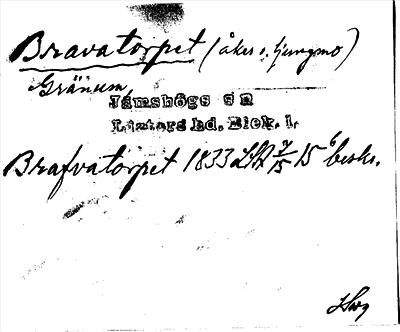 Bravatorpet (åker o. ljungmo)
Gränum,
Jämshögs sn
Listers hd. Blek. l.
Brafvatorpet 1833 LSA 7/15 15 6 beskr.